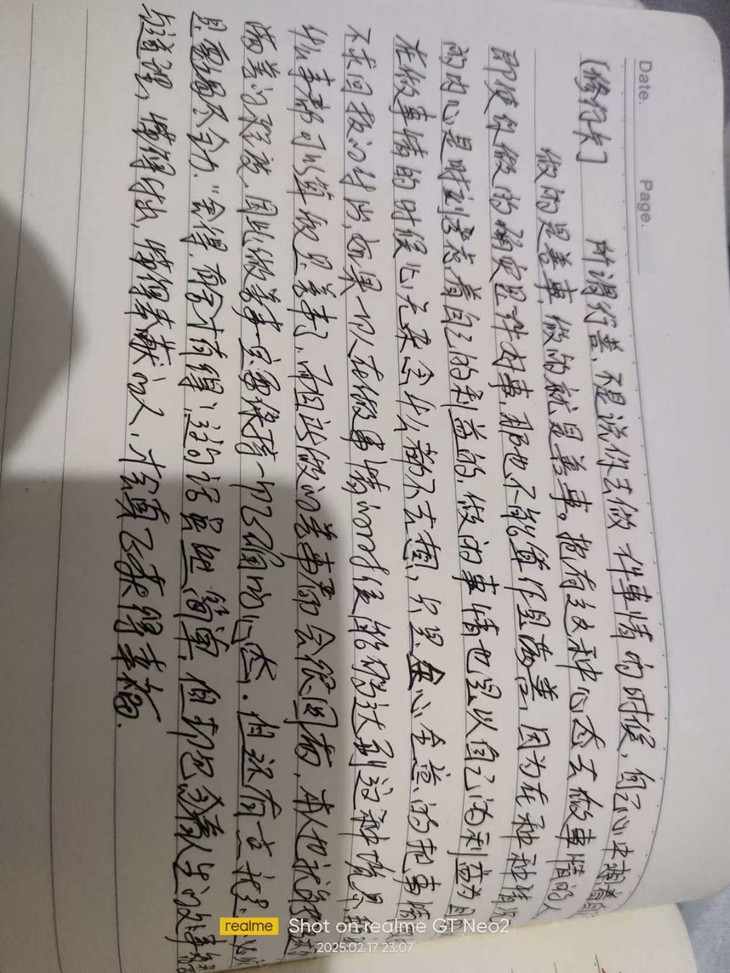 Date.
Page.
【修行长】 所谓行善，不是说你去做一件事情的时候，自己心中
做的是善事，做的就是善事。抱有这种心态去做事情的人
即使你做的确实是件好事，那也不能算作是满善，因为在种种情况
的内心是时刻考虑着自己的利益的，做的事情也是以自己的利益为
在做事情的时候，心无杂念，什么都不去想，只是全心全意的把事情
不求回报的付出，如果一个人在做事情的时候能够达到这种境界
什么事都可以算做是善事了，而且所做的善事都会很圆满，本人也就
满善的程度，因此做善事主要保持一个正确的心态，但还有一点就是
是要竭尽全力。"舍得，有舍才有得"，这句话虽然简单，但却包含着人生的处事
与道理，懂得付出，懂得奉献的人，才会真正获得幸福。
realme Shot on realme GT Neo2
2025.02.17 23:07